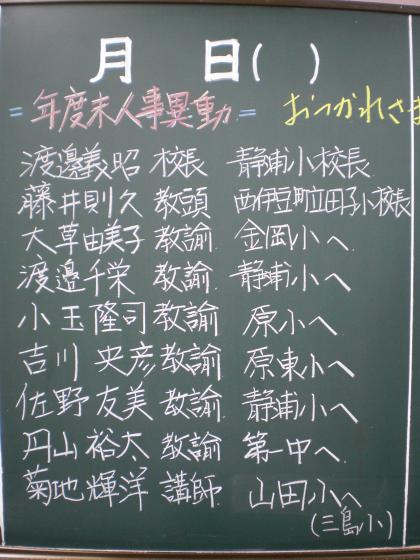 月 日( )
=年度末人事異動= おつかれさま
渡邉義昭 校長 静浦小校長
藤井則久 教頭 西伊豆町立田子小校長
大草由美子 教諭 金岡小へ
渡邉千栄 教諭 静浦小へ
小玉隆司 教諭 原小へ
吉川央彦 教諭 原東小へ
佐野友美 教諭 静浦小へ
円山裕太 教諭 第一中へ
菊地輝洋 講師 山田小へ
(三島小)